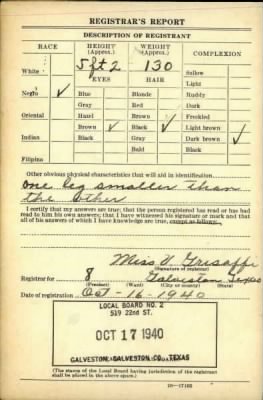 REGISTRAR'S REPORT
DESCRIPTION OF REGISTRANT
RACE HEIGHT (Approx.) WEIGHT (Approx.) COMPLEXION
White 5 ft 2 130 Sallow
EYES HAIR Light
Negro ✓ Blue Blonde Ruddy
Gray Red Dark
Oriental Hazel Brown Freckled
Brown ✓ Black ✓ Light brown
Indian Black Gray Dark brown ✓
Bald Black
Filipino
Other obvious physical characteristics that will aid in identification
One leg smaller than
the other
I certify that my answers are true; that the person registered has read or has had
read to him his own answers; that I have witnessed his signature or mark and that
all of his answers of which I have knowledge are true, except as follows:
Miss A Grisaffi
(Signature of registrar)
Registrar for 8 Galveston Texas
(Precinct) (Ward) (City or county) (State)
Date of registration Oct - 16 - 1940
LOCAL BOARD NO. 2
519 22nd ST.
OCT 17 1940
GALVESTON, GALVESTON CO., TEXAS
(The stamp of the Local Board having jurisdiction of the registrant
shall be placed in the above space.)